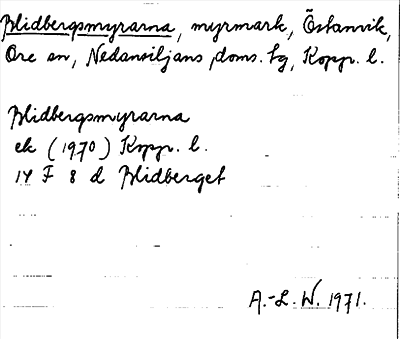 Blidbergsmyrarna, myrmark, Östanvik,
Ore sn, Nedansiljans doms. hg, Kopp. l.
Blidbergsmyrarna
ek (1970) Kopp. l.
14 F 8 d Blidberget
A.-L. W. 1971.